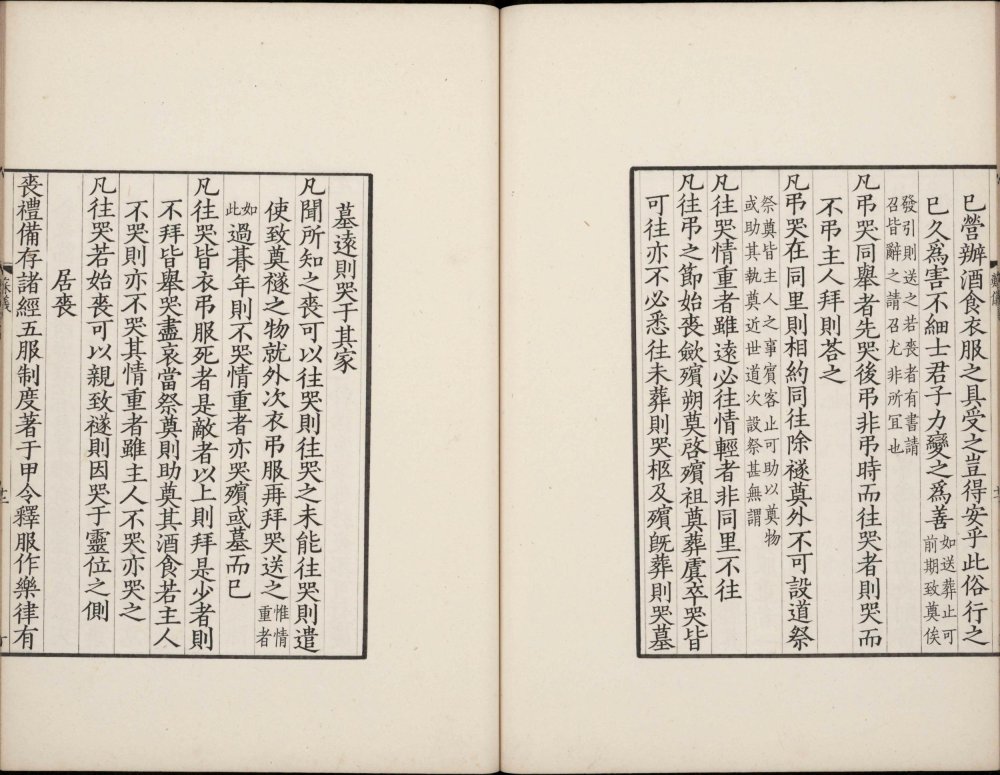 已營辦酒食衣服之具受之豈得安乎此俗行之
已久爲害不細士君子力變之爲善如送葬止可前期致奠俟
發引則送之若喪者有書請召皆辭之請召尤非所冝也
凡弔哭同舉者先哭後弔非弔時而往哭者則哭而
不弔主人拜則荅之
凡弔哭在同里則相約同往除襚奠外不可設道祭
祭奠皆主人之事賓客止可助以奠物或助其執奠近世道次設祭甚無謂
凡往哭情重者雖遠必往情輕者非同里不往
凡往弔之節始喪斂殯朔奠啓殯祖奠葬虞卒哭皆
可往亦不必悉往未葬則哭柩及殯旣葬則哭墓
墓遠則哭于其家
凡聞所知之喪可以往哭則往哭之未能往哭則遣
使致奠襚之物就外次衣弔服再拜哭送之惟情重者
如此過朞年則不哭情重者亦哭殯或墓而已
凡往哭皆衣弔服死者是敵者以上則拜是少者則
不拜皆舉哭盡哀當祭奠則助奠其酒食若主人
不哭則亦不哭其情重者雖主人不哭亦哭之
凡往哭若始喪可以親致襚則因哭于靈位之側
居喪
喪禮備存諸經五服制度著于甲令釋服作樂律有